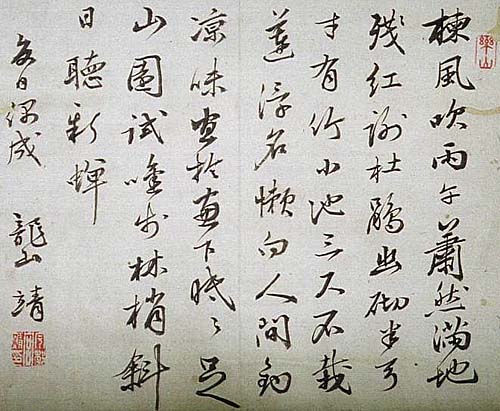 楝風吹雨午蕭然滿地
殘紅謝杜鵑幽砌半弓
才有竹小池三尺不栽
蓮浮名懶向人間釣
涼味宜於下眠々足
山園試吟步林梢斜
日聽新蟬
夏日偶成 龍山 靖